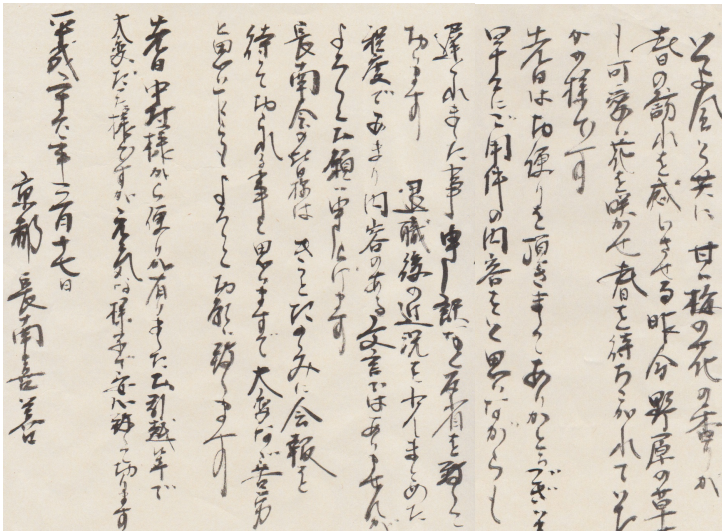 そよ風と共に 甘い梅の花の香りが
春の訪れを感じさせる昨今 野原の草
し可愛い花を咲かせ春を待ちかねてい
かの様です
先日はお便りを頂きましてありがとうございま
早々にご用件の内容をと思いながらし
遅くれました事申し訳なく反省を致して
おります 退職後の近況を少しまとめた
程度であまり内容のある文言ではありませんが
よろしくお願い申し上げます
長南会の皆様は きっとたのしみに会報を
待っておられる事と思いますで大変なご苦労
と思いますがよろしくお願い致します
先日中村様から便りが有りましたお引越等で
大変だった様ですが元気な様子で安心致しております
平成二十六年二月十七日
京都 長南喜美